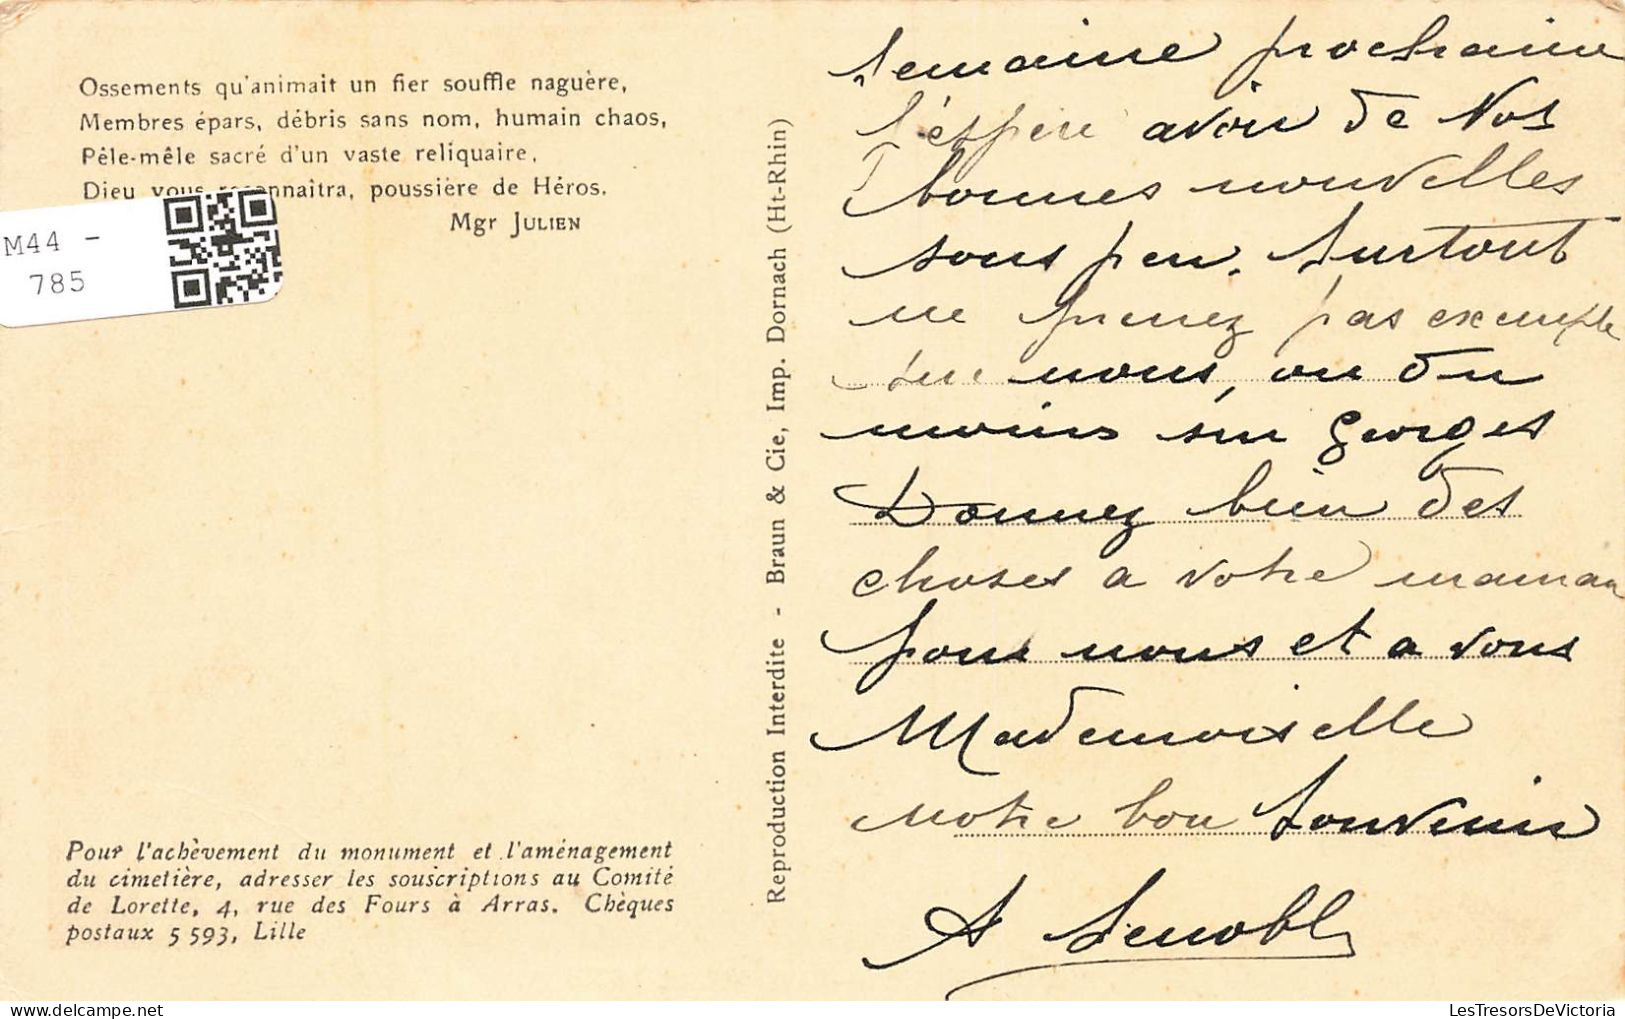 Ossements qu'animait un fier souffle naguère,
Membres épars, débris sans nom, humain chaos,
Pêle-mêle sacré d'un vaste reliquaire,
Dieu vous reconnaîtra, poussière de Héros.
Mgr JULIEN
M44 -
785
Pour l'achèvement du monument et l'aménagement
du cimetière, adresser les souscriptions au Comité
de Lorette, 4, rue des Fours à Arras. Chèques
postaux 5 593, Lille
Reproduction Interdite - Braun & Cie, Imp. Dornach (Ht-Rhin)
semaine prochaine
J'espère avoir de Vos
bonnes nouvelles
sous peu. Surtout
ne prenez pas exemple
sur nous, ou du
moins sur Georges
Donnez bien des
choses a votre maman
pour nous et a vous
Mademoiselle
notre bon Souvenir
A
LesTresorsDeVictoria